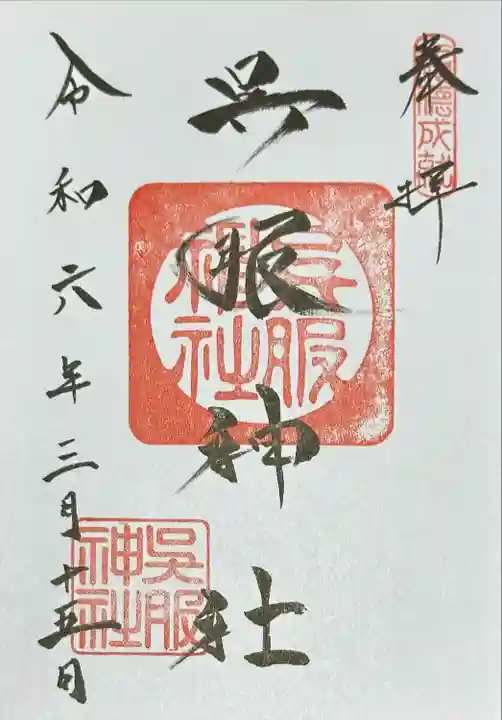 奉拝
呉服神社
令和六年三月十五日
呉服神社
呉服神社